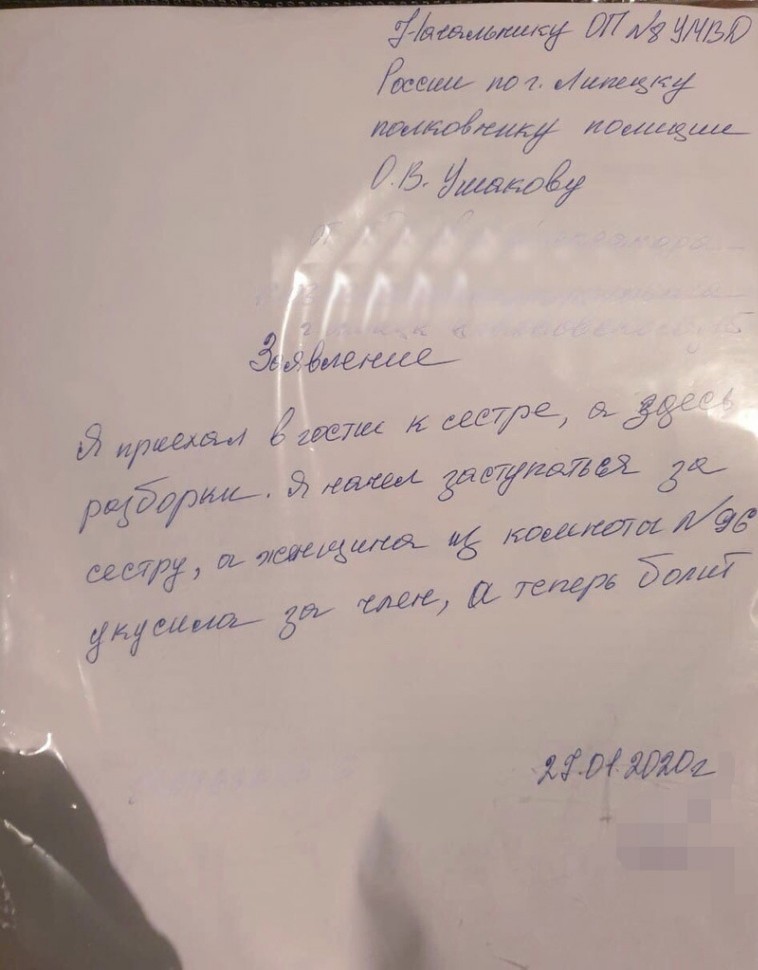 Начальнику ОП №8 УМВД
России по г. Липецку
полковнику полиции
О.В. Ушакову
от
Заявление
Я приехал в гости к сестре, а здесь
разборки. Я начел заступаться за
сестру, а женщина из комнаты №96
укусила за член, а теперь болит
29.01.2020г